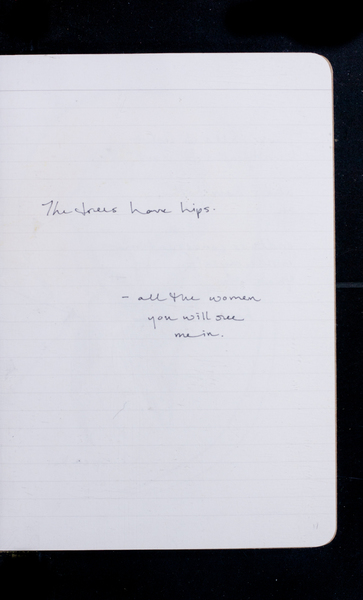 The trees have hips.
- all the women
you will see
me in.